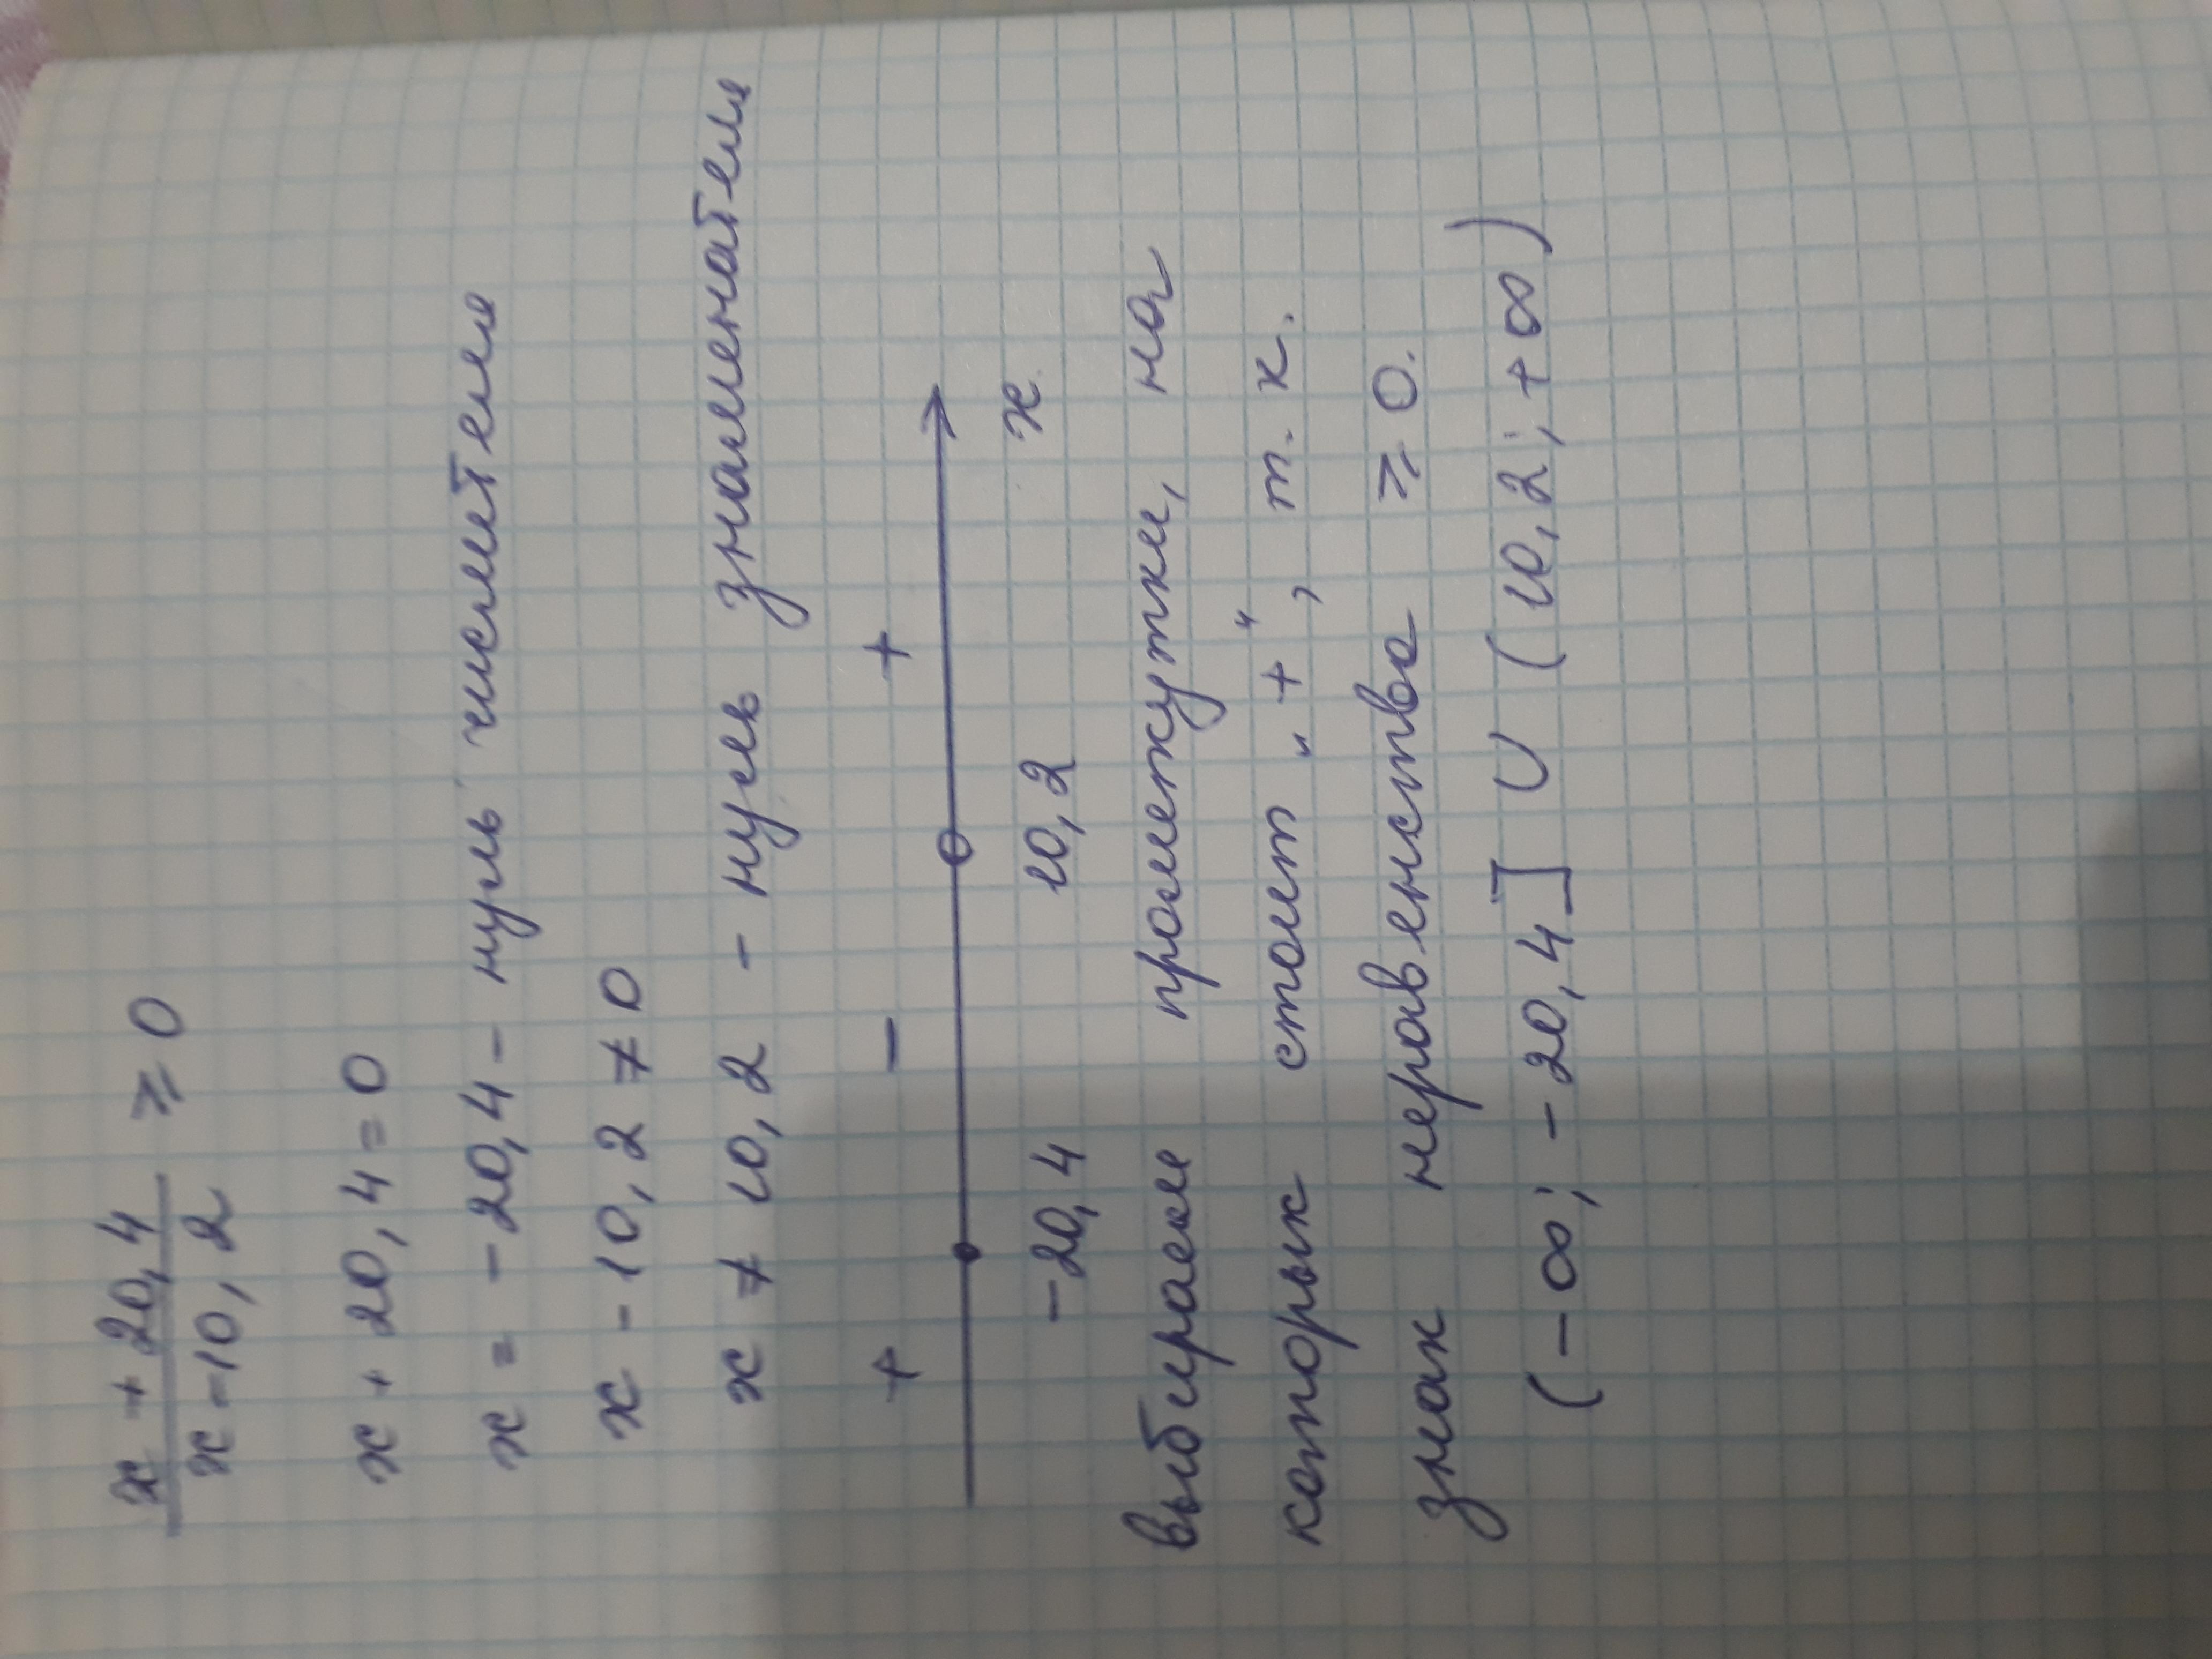 x + 20,4
x - 10,2
≥ 0
x + 20,4 = 0
x = - 20,4 - нуль числителя
x - 10,2 ≠ 0
x ≠ 10,2 - нуль знаменателя
+ - +
-20,4 10,2 x
выбираем промежутки, на
которых стоит „+“, т.к.
знак неравенства ≥ 0.
(-∞; -20,4] ∪ (10,2; +∞)